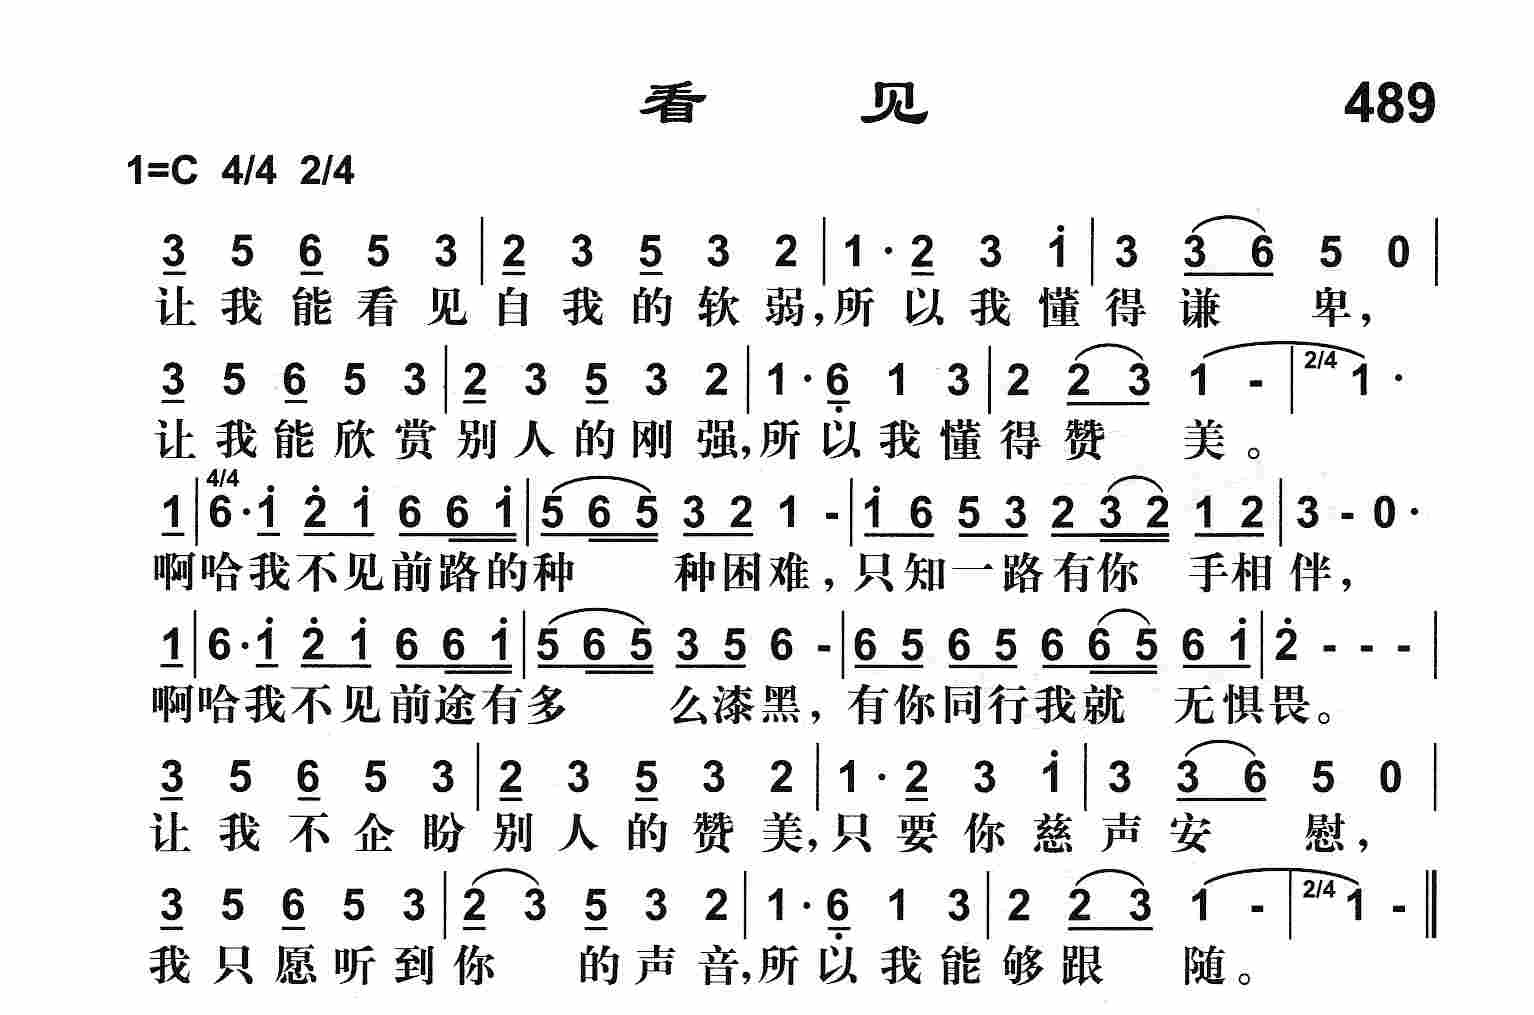 看见 489
1=C 4/4 2/4
3 5 6 5 3 | 2 3 5 3 2 | 1· 2 3 1̇ | 3 3 6 5 0 |
让我能看见自我的软弱,所以我懂得谦卑,
3 5 6 5 3 | 2 3 5 3 2 | 1· 6̣ 1 3 | 2 2 3 1 - | 2/4 1 ·
让我能欣赏别人的刚强,所以我懂得赞美。
1 | 4/4 6· 1̇ 2̇ 1̇ 6 6 1̇ | 5 6 5 3 2 1 - | 1̇ 6 5 3 2 3 2 1 2 | 3 - 0 ·
啊哈我不见前路的种种困难,只知一路有你手相伴,
1 | 6· 1̇ 2̇ 1̇ 6 6 1̇ | 5 6 5 3 5 6 - | 6 5 6 5 6 6 5 6 1̇ | 2̇ - - - |
啊哈我不见前途有多么漆黑,有你同行我就无惧畏。
3 5 6 5 3 | 2 3 5 3 2 | 1· 2 3 1̇ | 3 3 6 5 0 |
让我不企盼别人的赞美,只要你慈声安慰,
3 5 6 5 3 | 2 3 5 3 2 | 1· 6̣ 1 3 | 2 2 3 1 - | 2/4 1 - ‖
我只愿听到你的声音,所以我能够跟随。